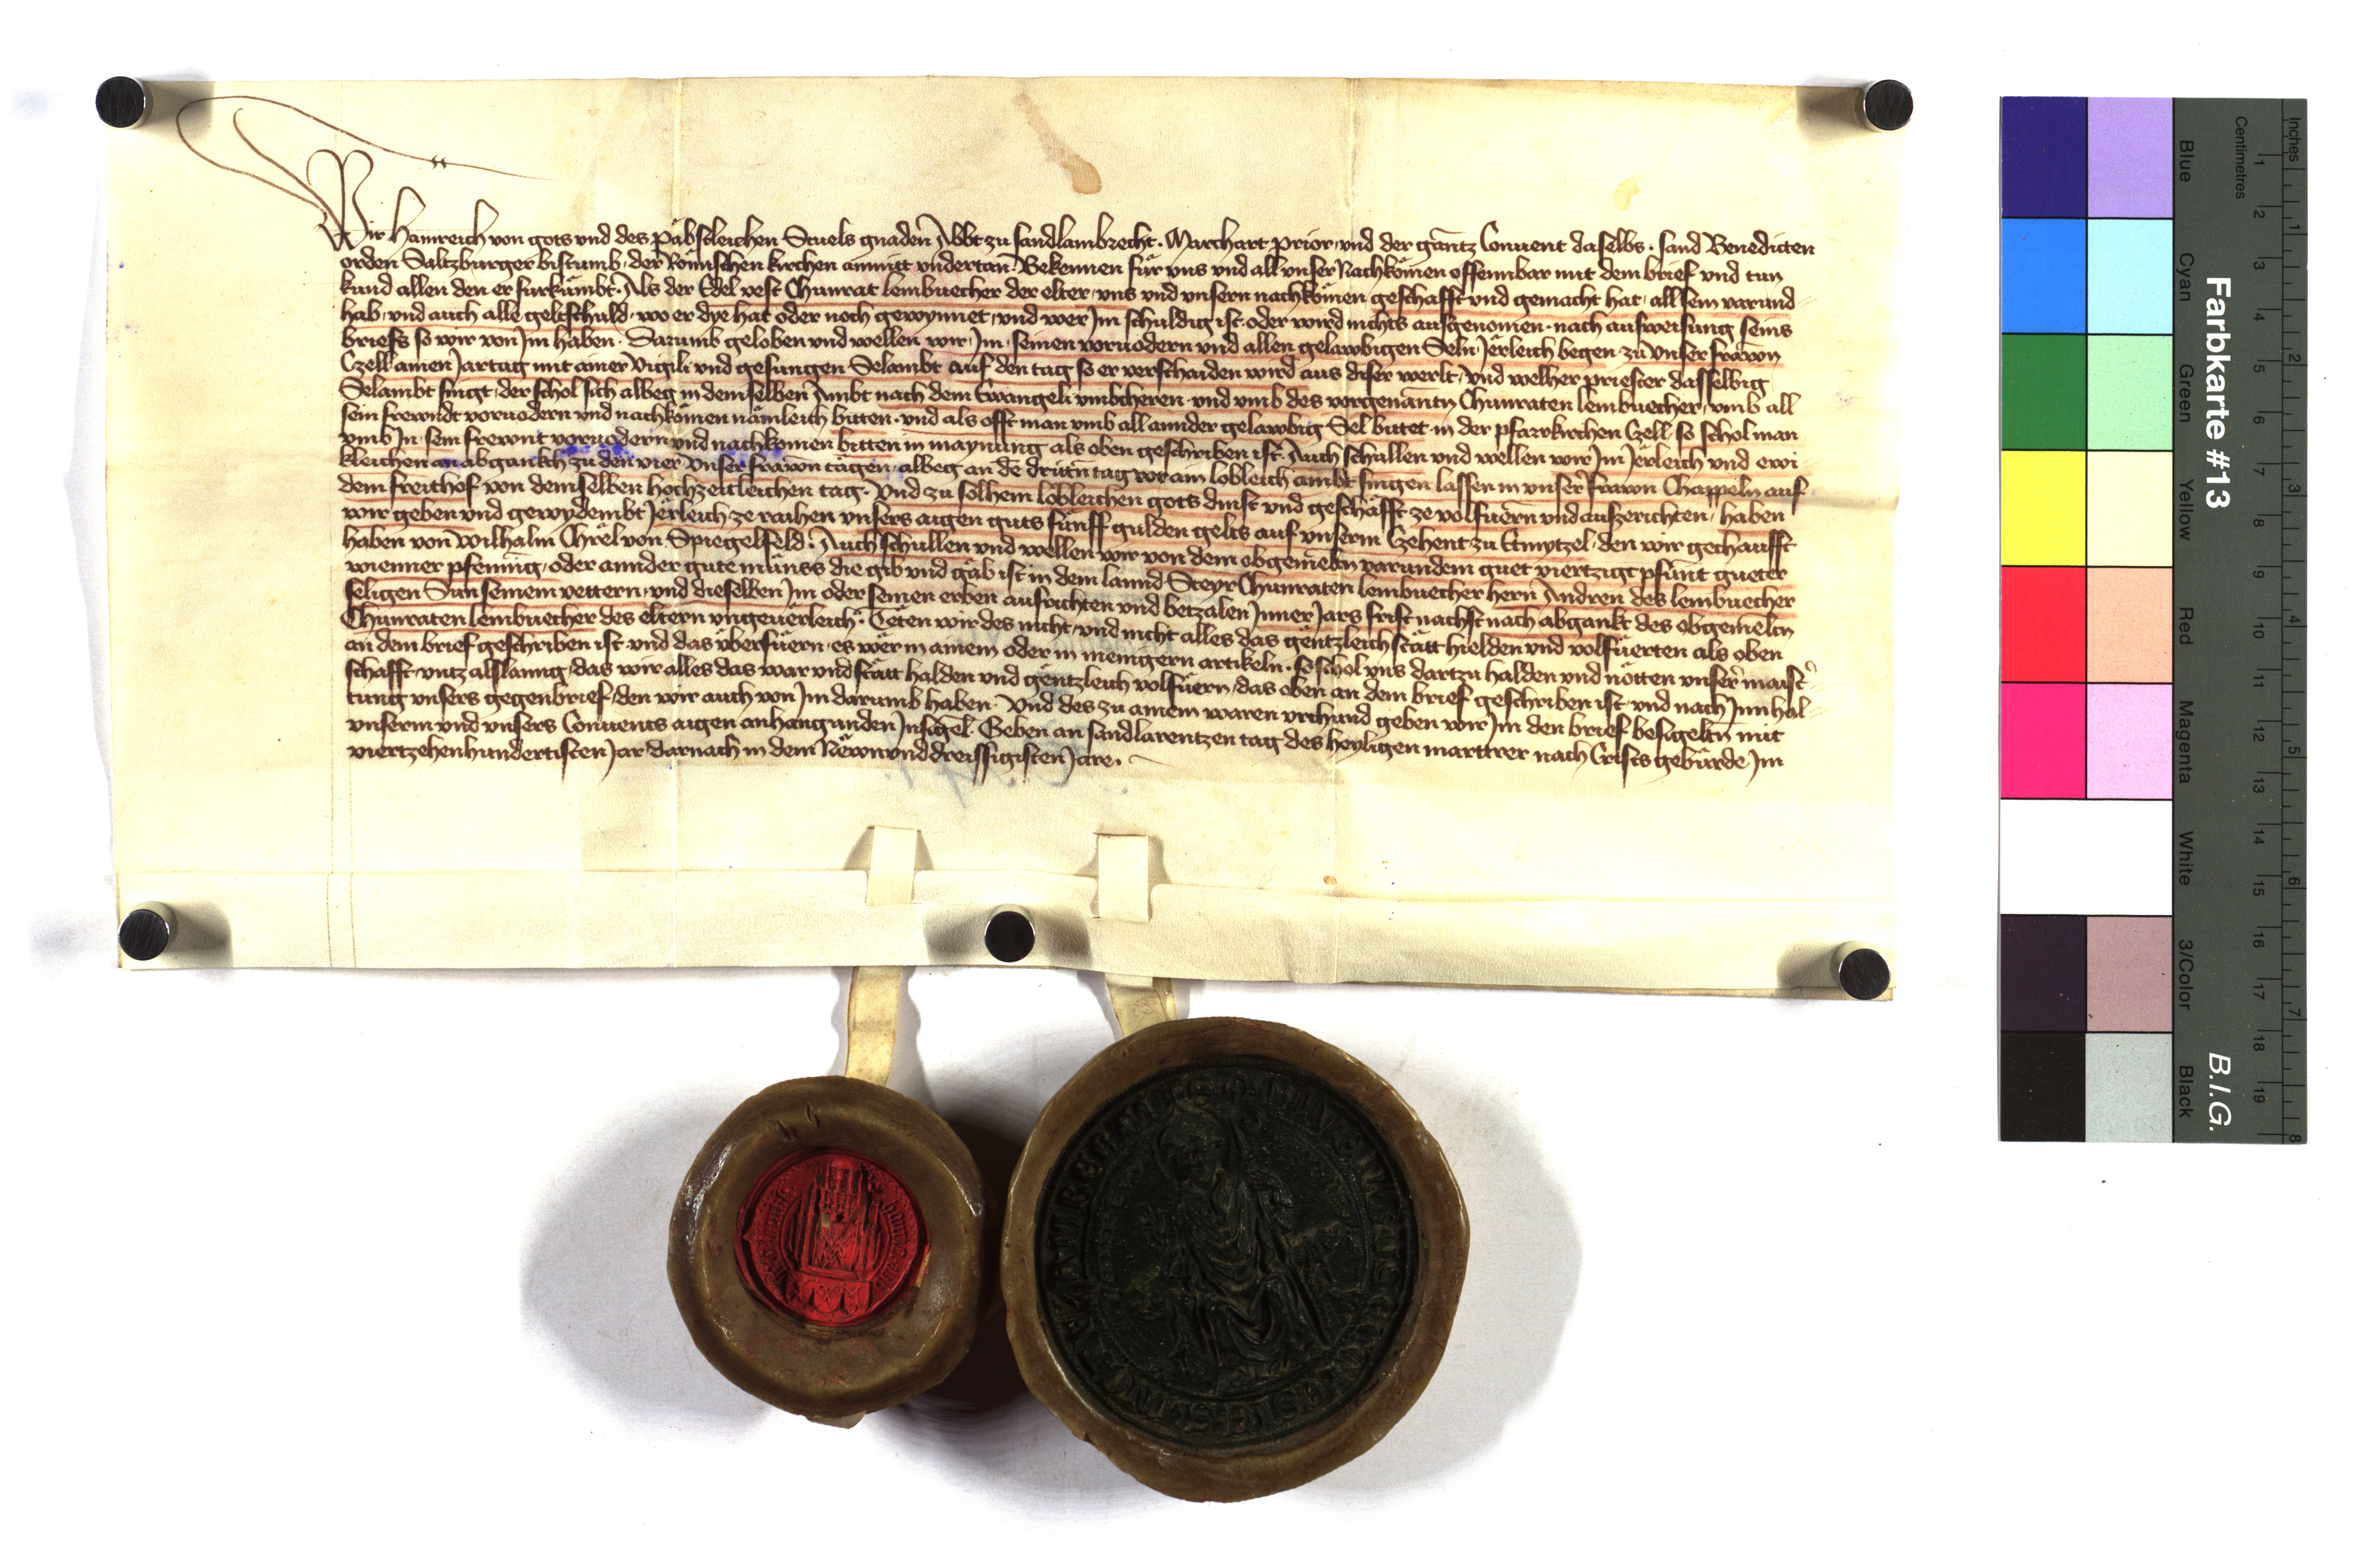 Wir Hainreich von gots vnd des Päbstleichen Stuels gnaden Abbt zu sandlambrecht. Marchart prior vnd der gantz Conuent daselbs. sand Benedicten
orden Saltzburger bistumb der Römischen kirchen anmitt vndertan. Bekennen für vns vnd all vnser Nachkömen offennbar mit dem brief vnd tun
kund allen den er furkümbt. Als der Edel vest Chunrat lembuecher der elter vns vnd vnsern nachkömen geschafft vnd gemacht hat, all sein varund
hab vnd auch alle geltschuld wo er dye hat oder noch gewynnet vnd wer Jm schuldig ist oder wird nichts ausgenomen nach ausweisung seins
briefs so wir von Jm haben. Darumb geloben vnd wellen wir Jm seinen voruodern vnd allen gelawbigen Seln Jërleich begen zu vnser frawn
Czell ainen Jartag mit ainer Vigili vnd gesungen Selambt auf den tag so er verschaiden wird aus diser werlt, vnd welher priester dasselbig
Selambt singt, der schol sich albeg in demselben Ambt nach dem Ewangeli vmbcheren vnd vmb des vorgenantn Chunraten lembuecher, vmb all
sein frewndt voruodern vnd nachkömen nämleich bitten. vnd als offt man vmb all annder gelawbig Sel bittet in der pfarrkirchen Czell so schol man
vmb Jn sein frewnt voruodern vnd nachkomen bitten in maynung als oben geschriben ist. Auch schullen vnd wellen wir Jm Jërleich vnd ewi-
kleichen an abgankch zu den vier vnser frawn tägen albeg an de dritten tag vor ain lobleich ambt singen lassen in vnser frawn Chappeln auf
dem freithof von demselben hochzeitleichen tag. Vnd zu solhem lobleichen gots dinst vnd geschäfft ze volfuern vnd auszerichten, haben
wir geben vnd gewydembt Jërleich ze raihen vnsers aigen guts fünff gulden gelts auf vnserm Czehent zu Gmytzel, den wir gechaufft
haben von Wilhalm Chrël von Spiegelfeld. Auch schullen vnd wellen wir von dem obgemeltn varundem guet viertzigt pfunt gueter
wienner pfenning, oder annder gute münss die gib vnd gäb ist in dem lannd Steyr Chunraten lembuecher hern Andren des lembuecher
seligen Sun seinem vettern, vnd dieselben Jm oder seinen erben ausrichten vnd betzalen Jnner Jars frist nachst nach abgankt des obgemeltn
Chunraten lembuecher des eltern vngeuërleich. Tëten wir des nicht, vnd nicht alles das gëntzleich stätt hielden vnd volfuerten als oben
an dem brief geschriben ist vnd das überfüern, es wër in ainem oder in menigern artikeln. so schol vns dartzu halden vnd nötten vnser maist-
schafft, vntz alslanng, das wir alles das war vnd stätt halden vnd gëntzleich volfüern, das oben an dem brief geschriben ist, vnd nach Jnnhal-
tung vnsers gegenbrief, den wir auch von Jm darumb haben. Vnd des zu ainem waren vrchund geben wir Jm den brief besigeltn mit
vnserm vnd vnsers Conuents aigen anhangunden Jnsigel. Geben an sand larentzen tag des heyligen marttrer nach Crists gebürde Jm
viertzehenhundertisten Jar darnach in dem Newnvnddreissigisten Jare.
Farbkarte #13
B.I.G.
Blue
Cyan
Green
Yellow
Red
Magenta
White
3/Color
Black
Centimetres
Inches
1 2 3 4 5 6 7 8 9 10 11 12 13 14 15 16 17 18 19
1 2 3 4 5 6 7 8